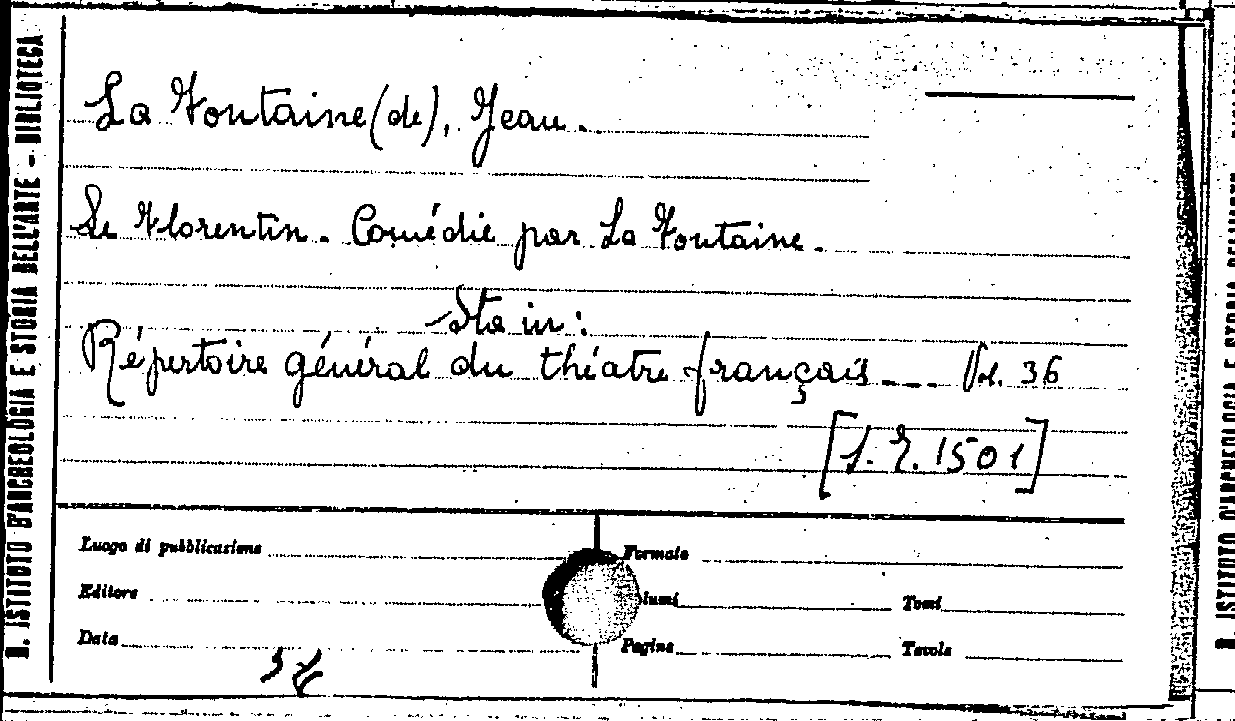 R. ISTITUTO D'ARCHEOLOGIA E STORIA DELL'ARTE - BIBLIOTECA
La Fontaine (de), Jean.
Le Florentin. Comédie par La Fontaine.
Sta in:
Répertoire général du théatre français --- Vol. 36
[S. R. 1501]
Luogo di pubblicazione
Formato
Editore
Tomi
Data
Pagine
Tavole